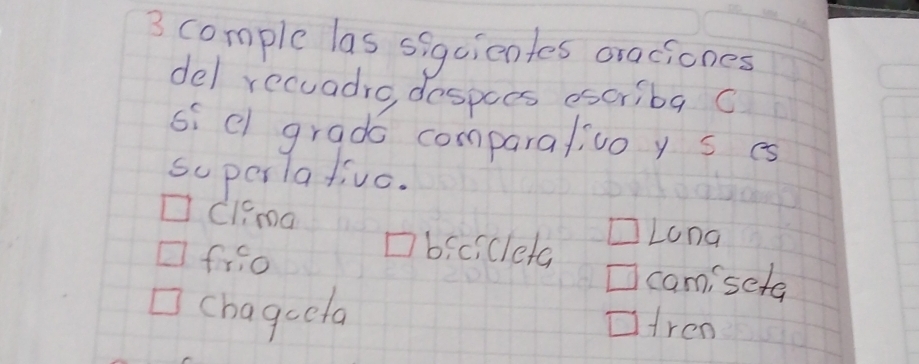 3 comple las sigcientes oraciones
del recuadro, despoes escriba C
si el grado comparativo y S es
superlativo.
clima
frio
chaqueta
bicicleta
Luna
camiseta
tren